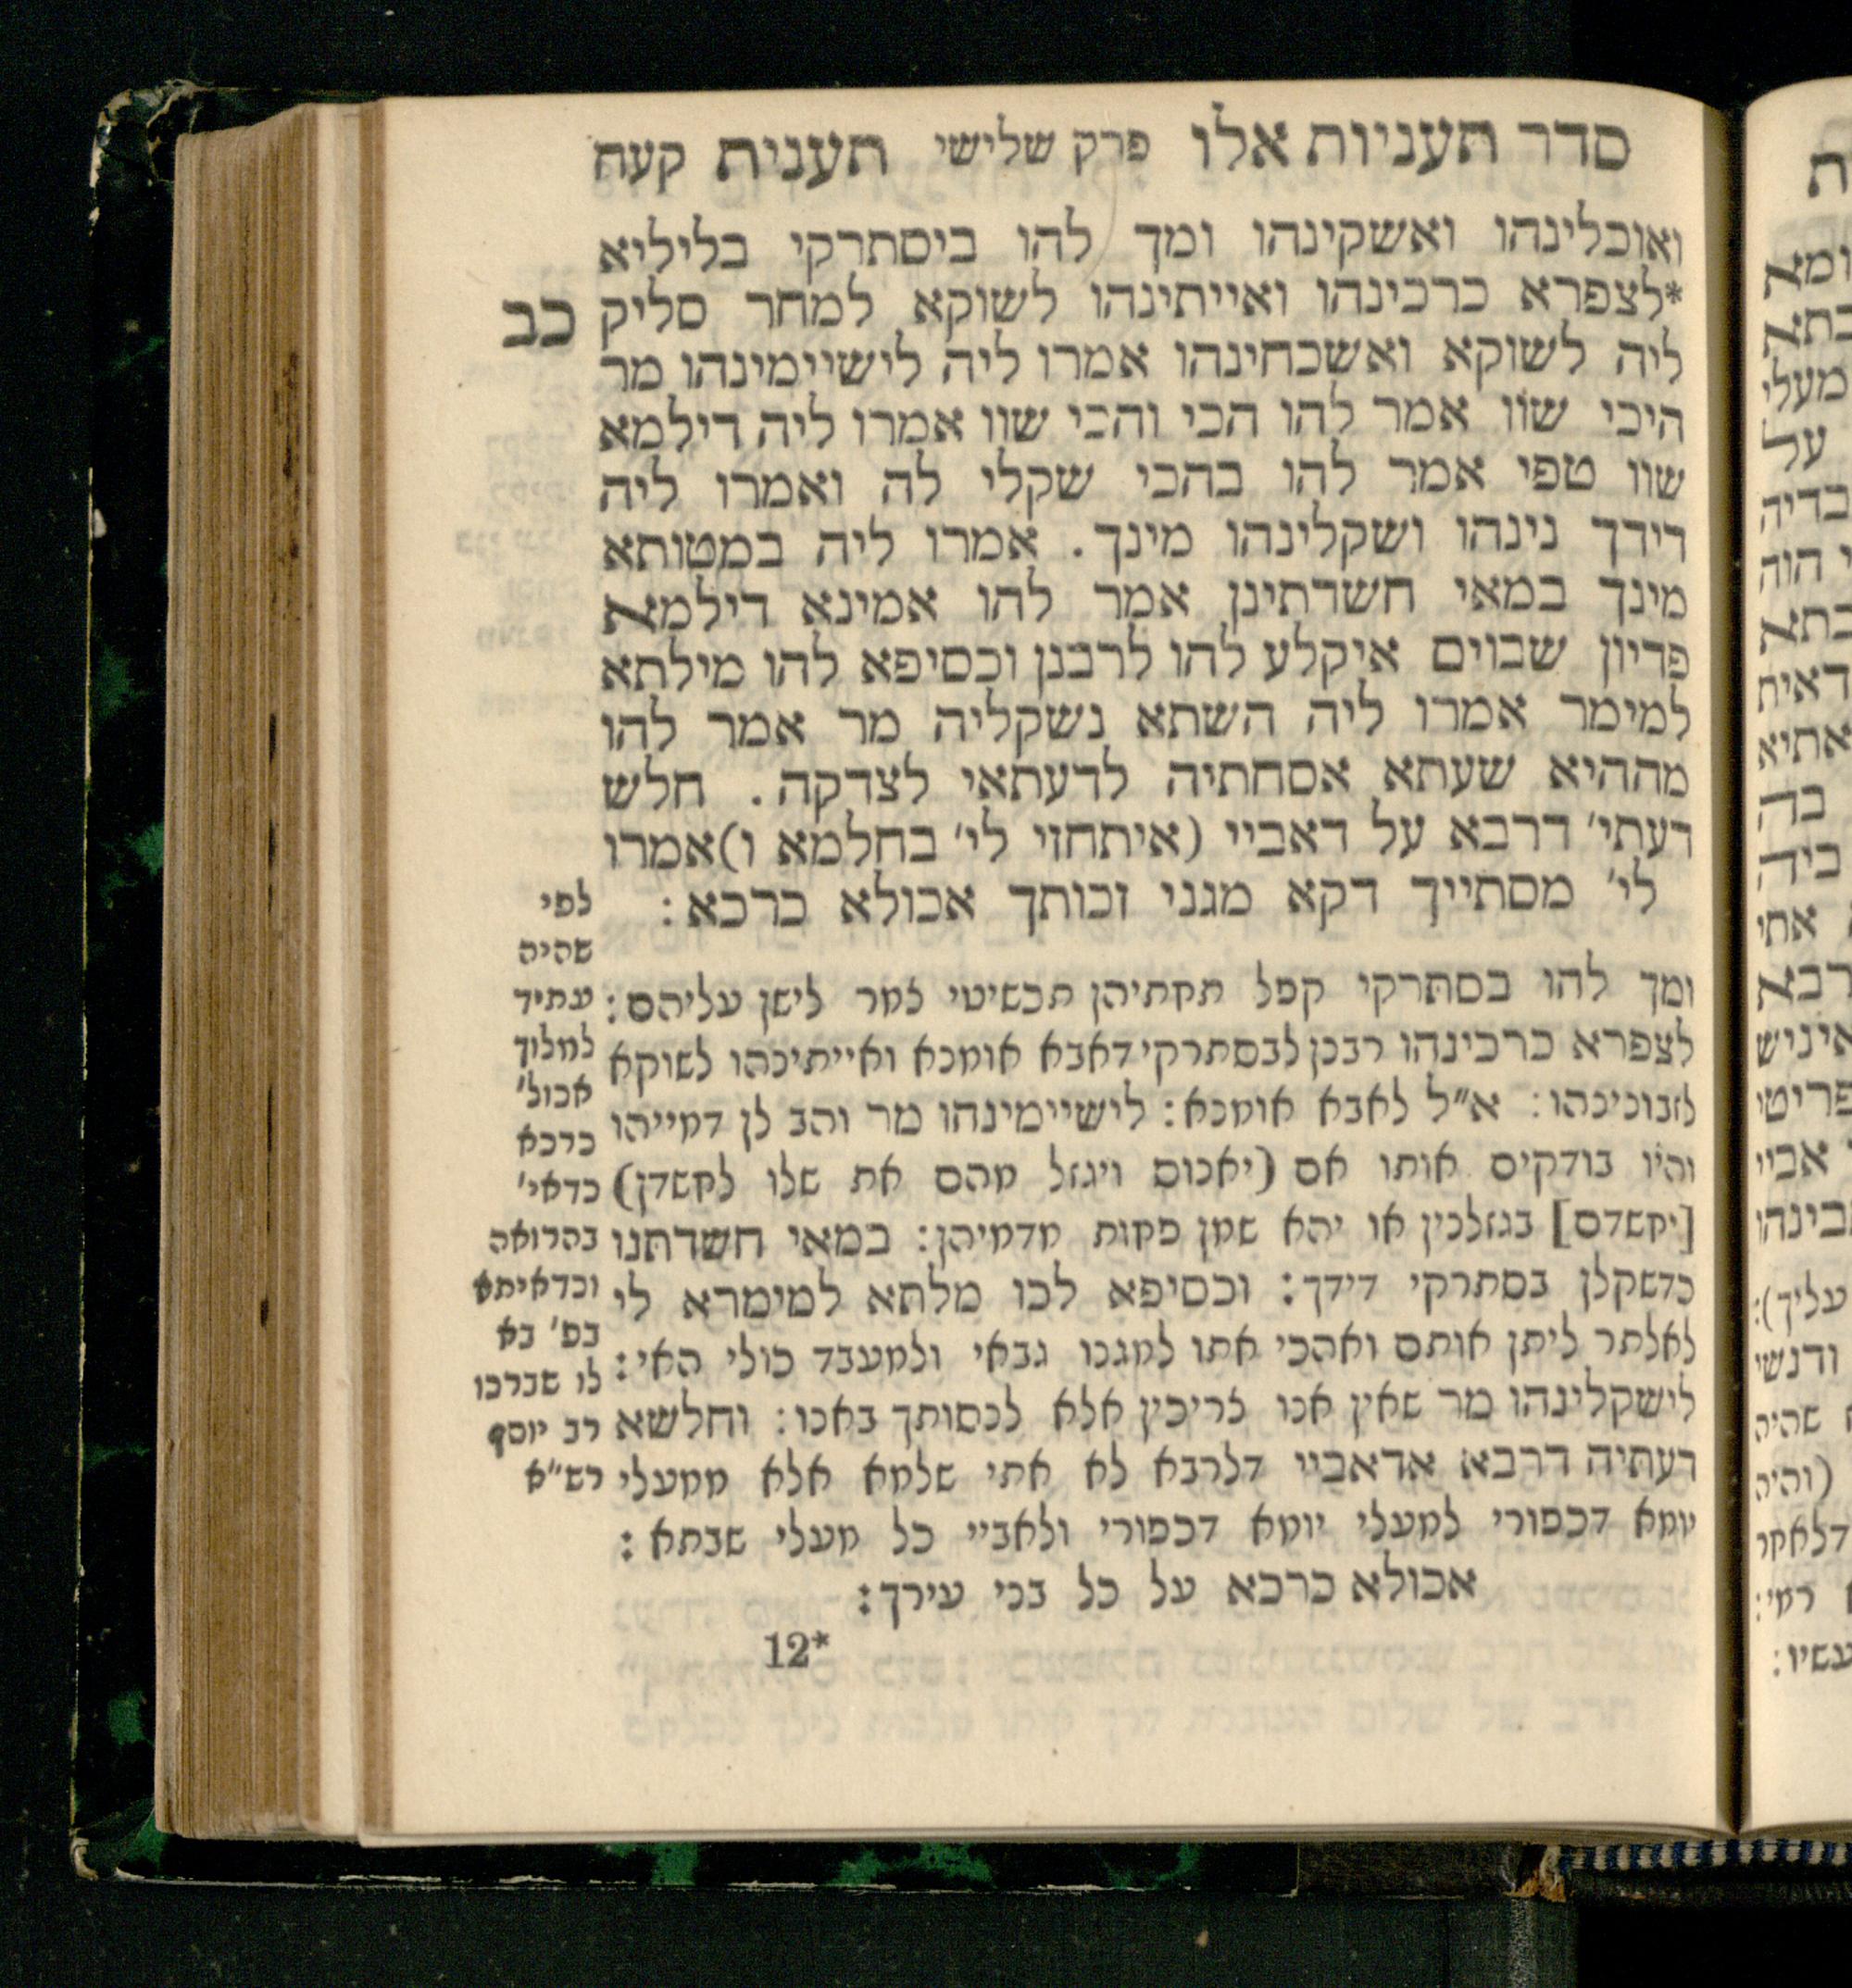 סדר תעניות אלו פרק שלישי תענית קעח
ואוכלינהו ואשקינהו ומך להו ביסתרקי בליליא
*לצפרא כרכינהו ואייתינהו לשוקא למחר סליק
כב
ליה לשוקא ואשכחינהו אמרו ליה לישיימינהו מר
היכי שוו אמר להו הכי והכי שוו אמרו ליה דילמא
שוו טפי אמר להו בהכי שקלי לה ואמרו ליה
דידך נינהו ושקלינהו מינך. אמרו ליה במטותא
מינך במאי חשדתינן אמר להו אמינא דילמא
פדיון שבוים איקלע להו לרבנן וכסיפא להו מילתא
למימר אמרו ליה השתא נשקליה מר אמר להו
מההיא שעתא אסחתיה לדעתאי לצדקה. חלש
דעתי' דרבא על דאביי (איתחזי לי' בחלמא ו)אמרו
לי' מסתייך דקא מגני זכותך אכולא כרכא:
ומך להו בסתרקי קפל תחתיהן תכשיטי צמר לישן עליהם:
לצפרא כרכינהו רבנן לבסתרקי דאבא אומנא ואייתינהו לשוקא
לזבונינהו: א״ל לאבא אומנא: לישיימינהו מר והב לן דמייהו
והיו בודקים אותו אם (יאכום ויגזל מהם את שלו לחשדן)
[יחשדם] בגזלנין או יהא שמן פחות מדמיהן: במאי חשדתנו
כדשקלן בסתרקי דידך: וכסיפא לכו מלתא למימרא לי
לאלתר ליתן אותם ואהכי אתו למגנו גבאי ולמעבד כולי האי:
לישקלינהו מר שאין אנו צריכין אלא לנסותך באנו: וחלשא
דעתיה דרבא אדאביי דלרבא לא אתי שלמא אלא ממעלי
יומא דכפורי למעלי יומא דכפורי ולאביי כל מעלי שבתא:
אכולא כרכא על כל בני עירך:
לפי
שהיה
עתיד
למליך
אכול'
כרכא
כדאי'
בהרואה
וכדאיתא
בפ' בא
לו שברכו
רב יוסף
רש״א
12*